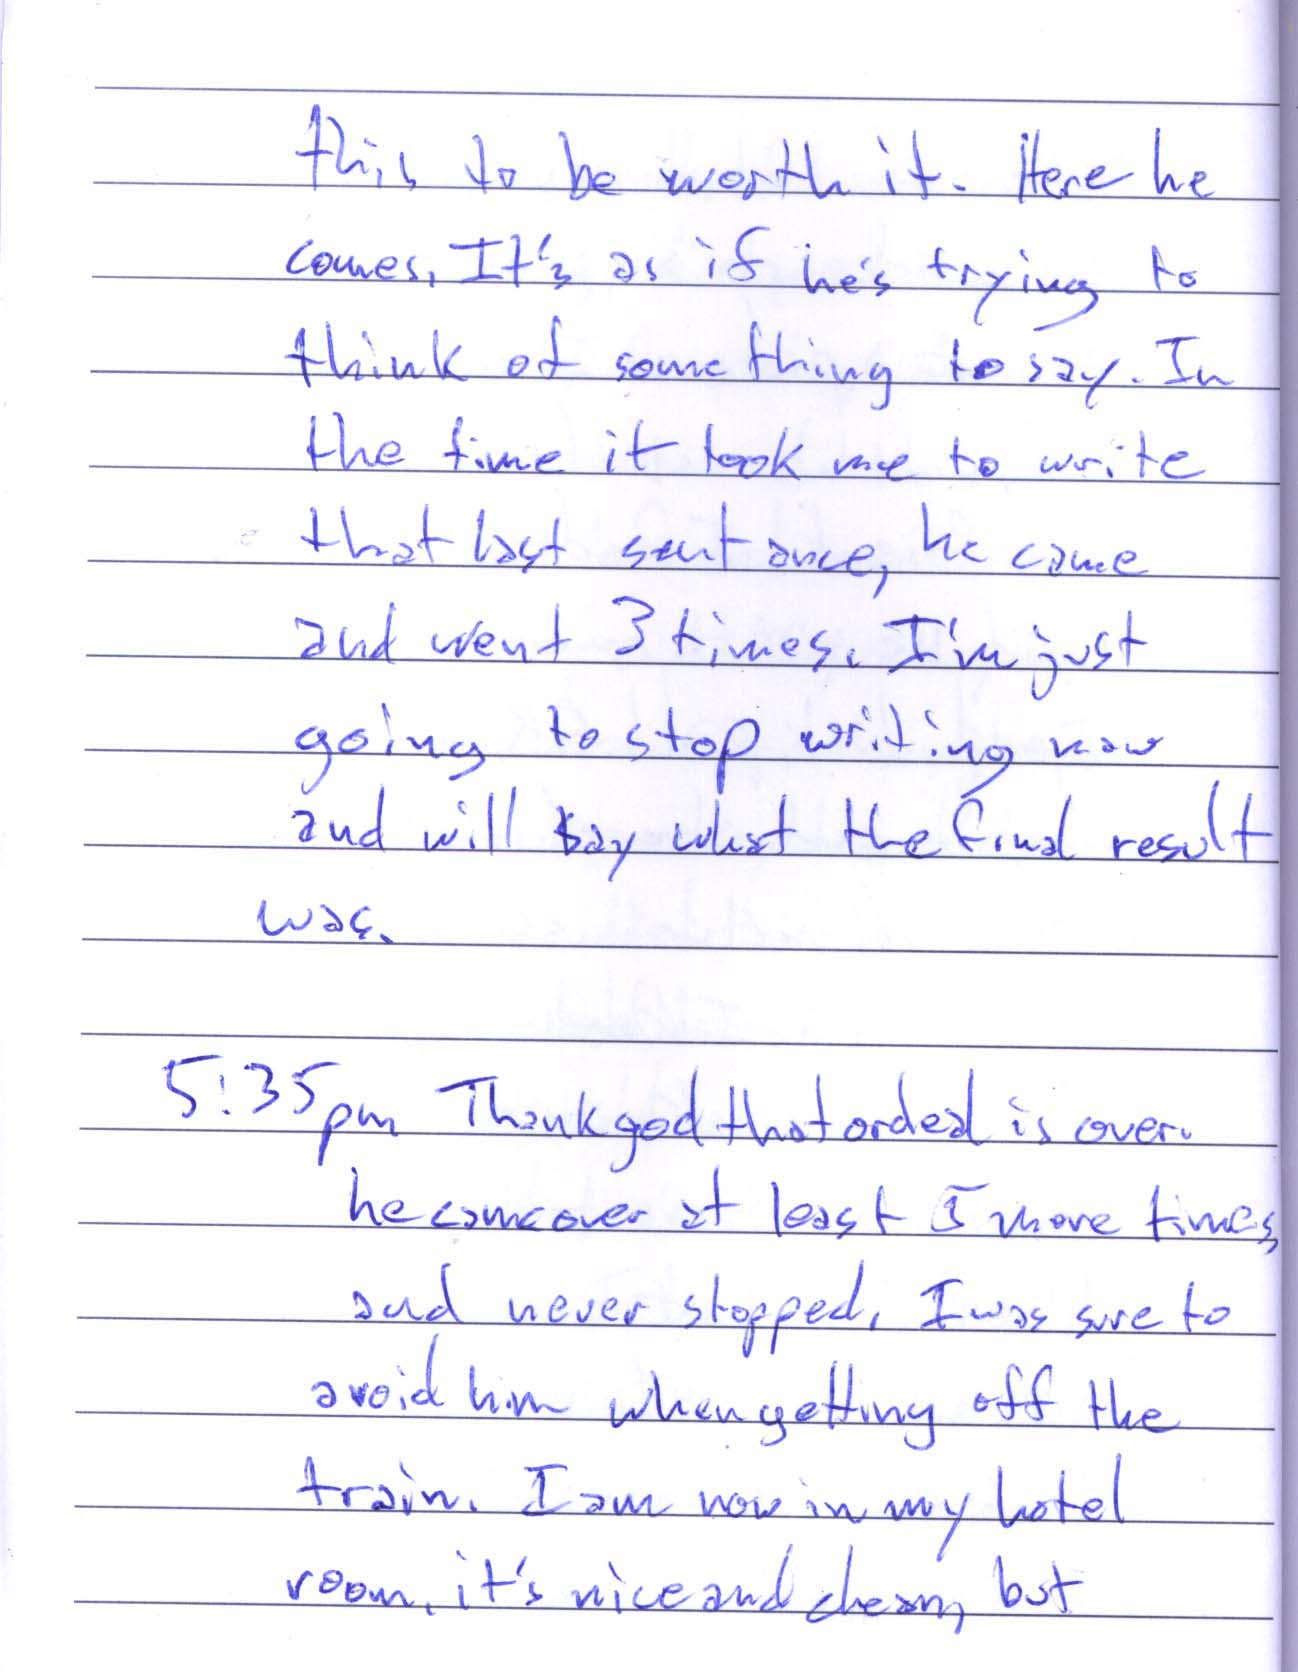 this to be worth it. Here he
comes, It's as if he's trying to
think of something to say. In
the time it took me to write
that last sentance, he came
and went 3 times. I'm just
going to stop writing now
and will say what the final result
was.
5:35pm Thank god that ordeal is over.
he came over at least 5 more times,
and never stopped. I was sure to
avoid him when getting off the
train. I am now in my hotel
room, it's nice and clean, but